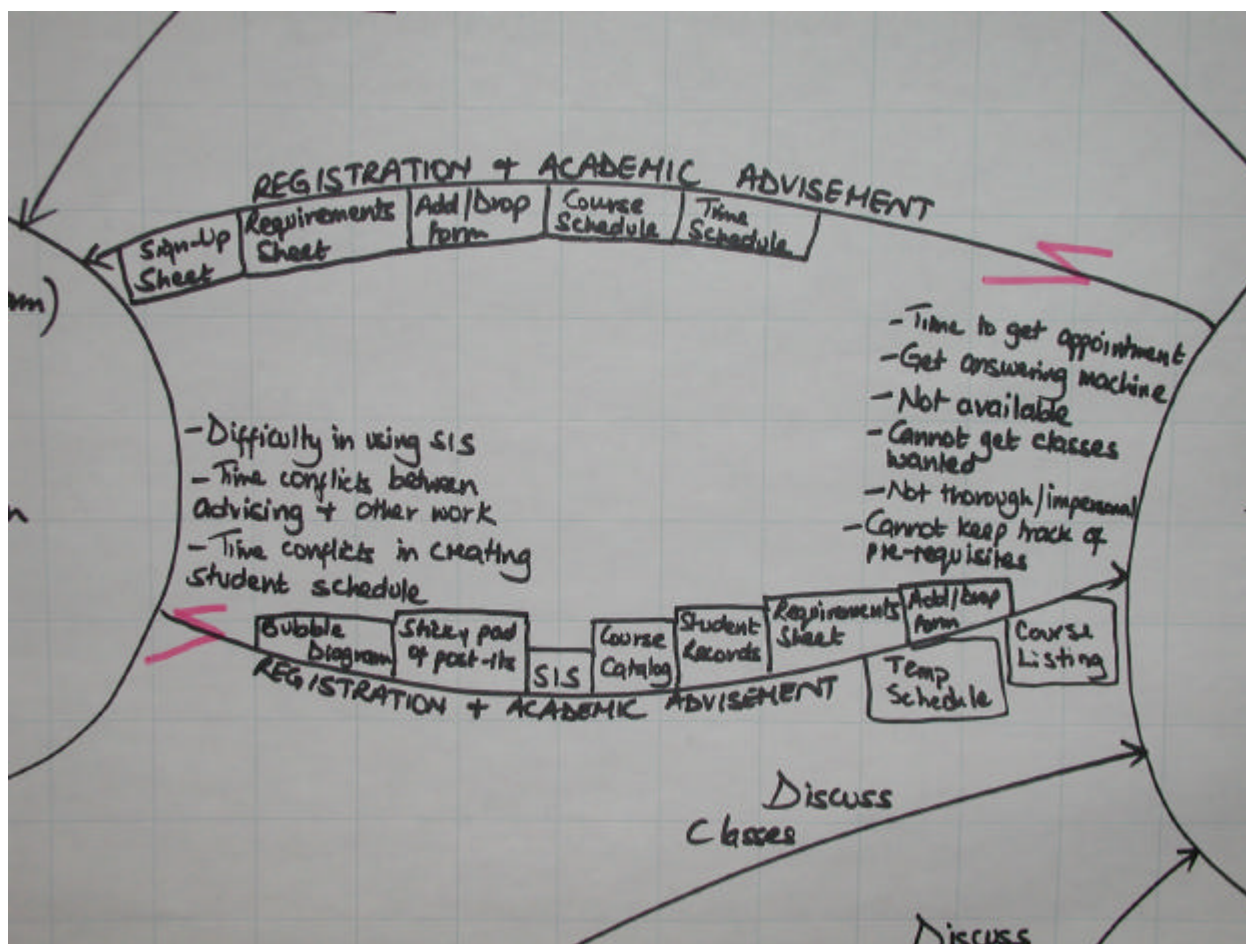 REGISTRATION + ACADEMIC ADVISEMENT
Sign-Up
Sheet
Requirements
Sheet
Add/Drop
Form
Course
Schedule
Time
Schedule
- Time to get appointment
- Get answering machine
- Not available
- Cannot get classes
wanted
- Not thorough/impersonal
- Cannot keep track of
pre-requisites
- Difficulty in using SIS
- Time conflicts between
advising + other work
- Time conflicts in creating
student schedule
Bubble
Diagram
Sticky pad
of post-its
SIS
Course
Catalog
Student
Records
Requirements
Sheet
Add/Drop
Form
Temp
Schedule
Course
Listing
REGISTRATION + ACADEMIC ADVISEMENT
Discuss
Classes
Discuss